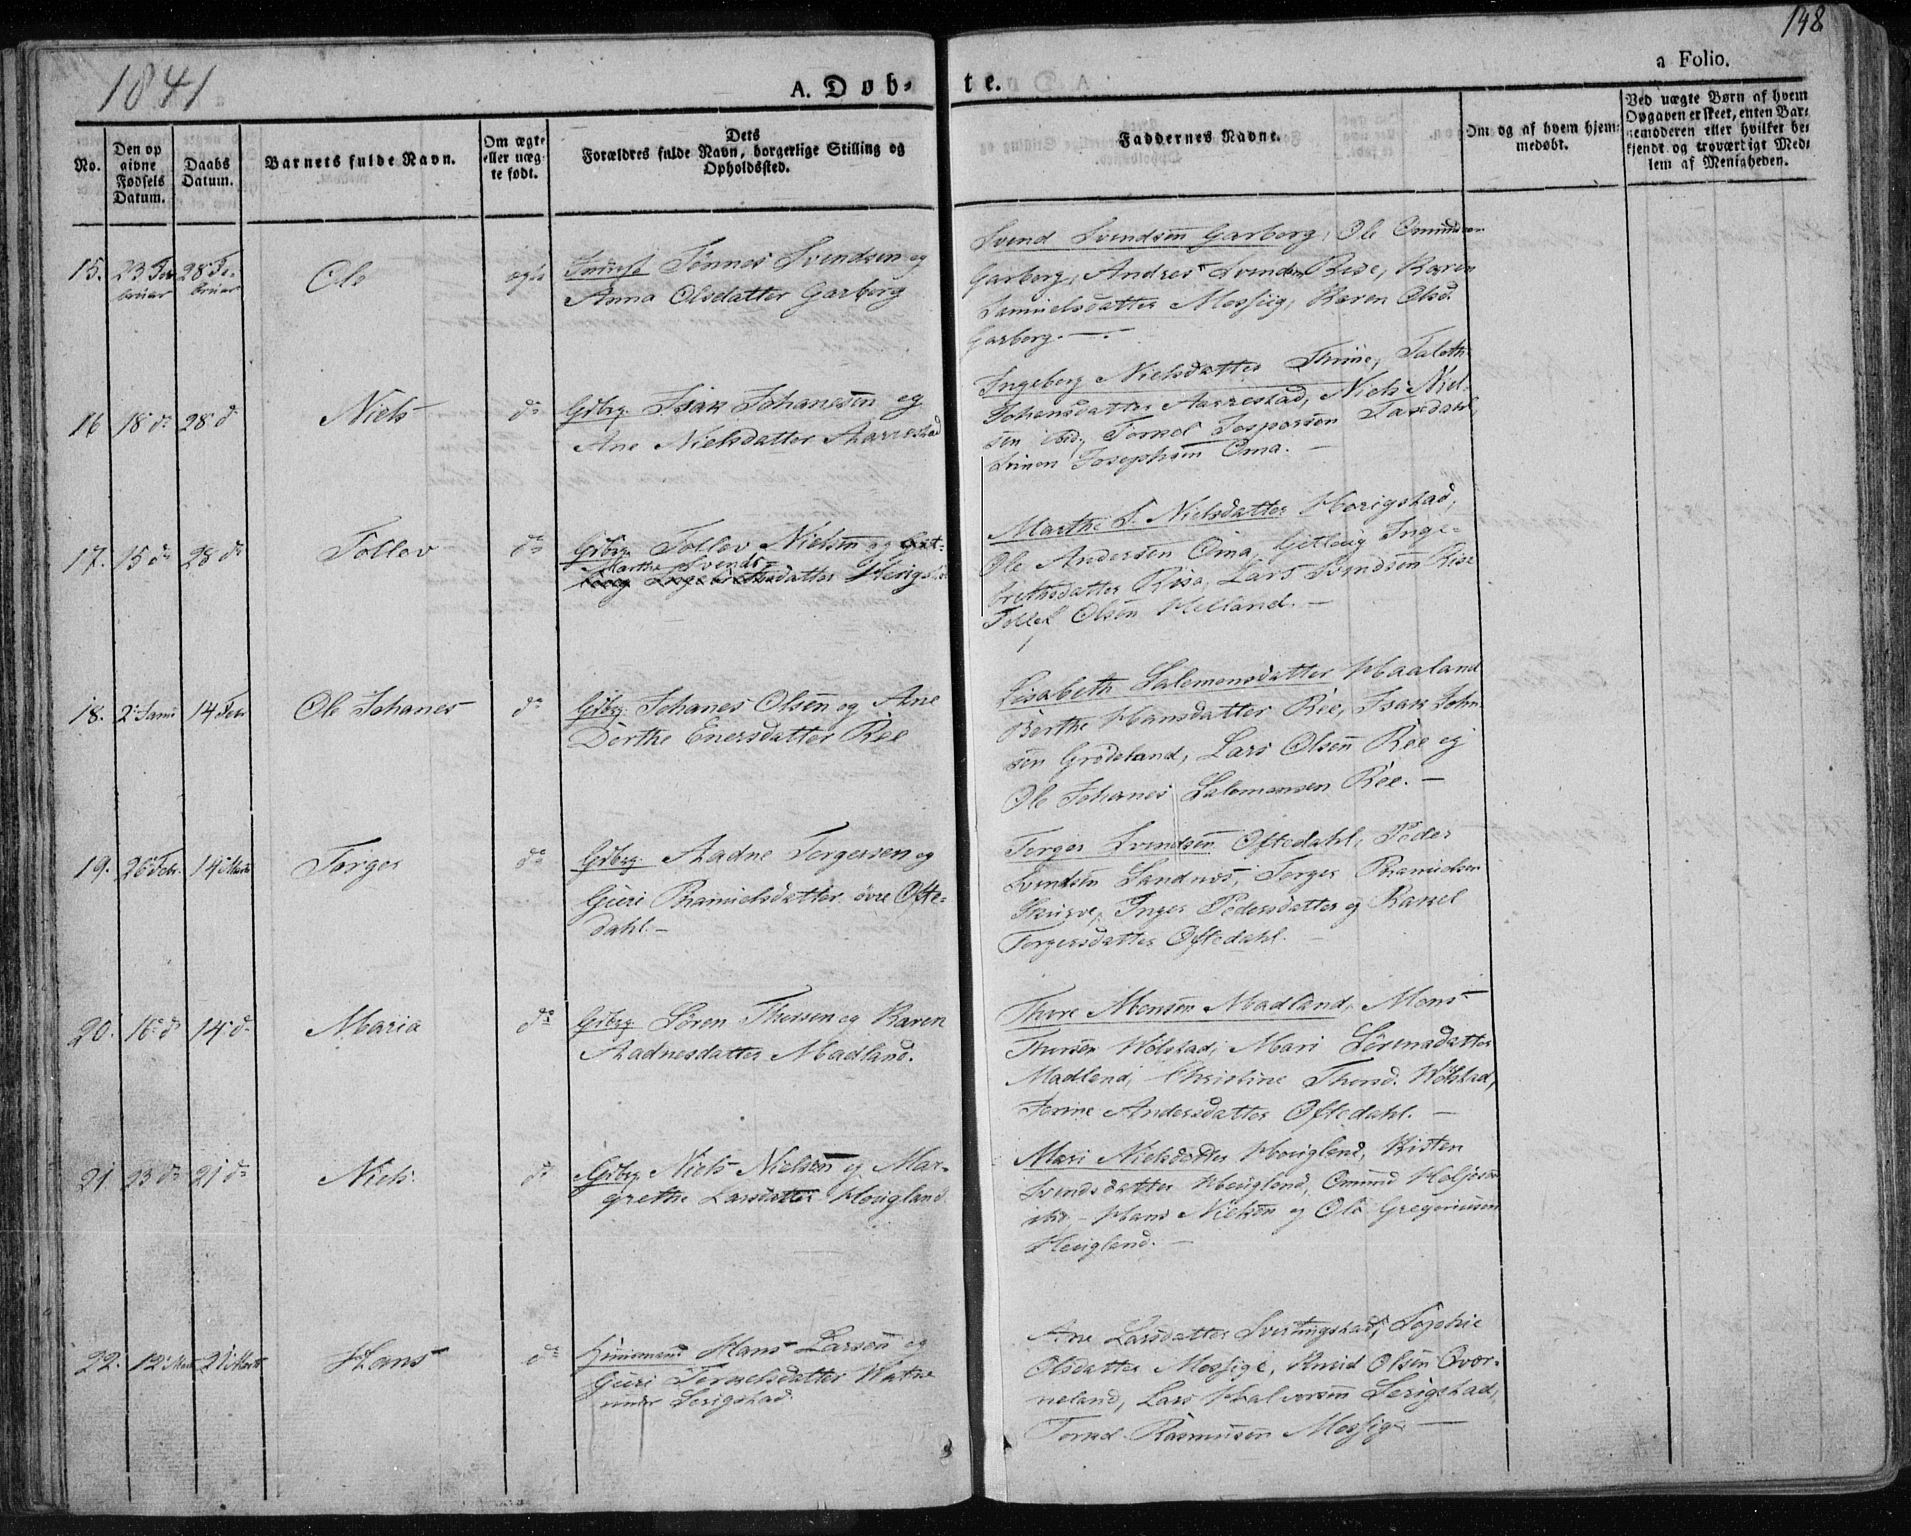 148
1841
A. Døb-
te.
a Folio.
No.
Den op
givne
Fødsels
Datum.
Daabs
Datum.
Barnets fulde Navn.
Om ægte
eller uæg-
te født.
Dets
Forældres fulde Navn, borgerlige Stilling og
Opholdssted.
Faddernes Navne.
Om og af hvem hjem-
medøbt.
Ved uægte Børn af hvem
Opgaven er skeet, enten Bar-
nemoderen eller hvilket be-
kjendt og troværdigt Med-
lem af Menigheden.
15. 23 Fe- 28 Fe- Ole ægte Tønnes Svendsen og
bruar bruar Anna Olsdatter Garborg
Svend Svendsen Garborg, Ole Omundsen
Garborg, Andres Svendsen Rise, Karen
Samuelsdatter Mossiig, Karen Olsd.
Garborg. —
16 18 d° 28 d° Niels d° Gdbrg. Isak Johanesen og
Ane Nielsdatter Aarrestad
Ingeborg Nielsdatter Thime,
Johansdatter Aarrestad, Niels Niel-
sen ibid, Torkel Jespersen Taxdahl,
Simon Josephsen Oma. —
17. 15 d° 28 d° Tollev d° Gdbrg. Tollev Nielsen og
Martha Svends-
datter
Marthe S. Nielsdatter Horigstad,
Ole Andersen Oma, Inge-
brethsdatter Risa, Lars Svendsen Rise
Tollef Olsen Helland. —
18. 2 Janu 14 Feb Ole Johanes d° Gdbrg. Johanes Olsen og Ane
Dorthe Enersdatter Ree
Lisabeth Salomonsdatter Haaland
Berthe Hansdatter Ree, Isak John-
sen Grødeland, Lars Olsen Ree og
Ole Johanes Salomonsen Ree. —
19. 26 Febr. 14 Marts Torger d° Gdbrg. Aadne Torgersen og
Guri datter øvre Ofte-
dahl. —
Torger Svendsen Oftedahl, Peder
Svendsen Sandnes, Torger
Inger Pedersdatter og Rakel
Torgersdatter Oftedahl. —
20. 16 d° 14 d° Maria d° Gdbrg. Søren Thorsen og Karen
Aadnesdatter Madland.
Thore Monsen Madland, Mons
Thorsen Wølstad, Mari Sørensdatter
Madland, Christine Thorsd. Wølstad,
Serine Andersdatter Oftedahl. —
21 23 d° 21 d° Niels d° Gdbrg. Niels Nielsen og Mar-
grethe Larsdatter Houigland.
Mari Nielsdatter Houigland, Kisten
Svendsdatter Houigland, Omund
ibid, Hans Nielsen og Ole Gregoriusen
Houigland. —
22. 12 Marts 21 Marts Hans d° Huusmand Hans Larsen og
Guri Torkelsdatter Watne
under Serigstad.
Ane Larsdatter Svertingstad, Sophie
Olsdatter Mossige, Knud Olsen Qver-
neland, Lars Halvorsen Serigstad,
Torkel Rasmusen Mossige —